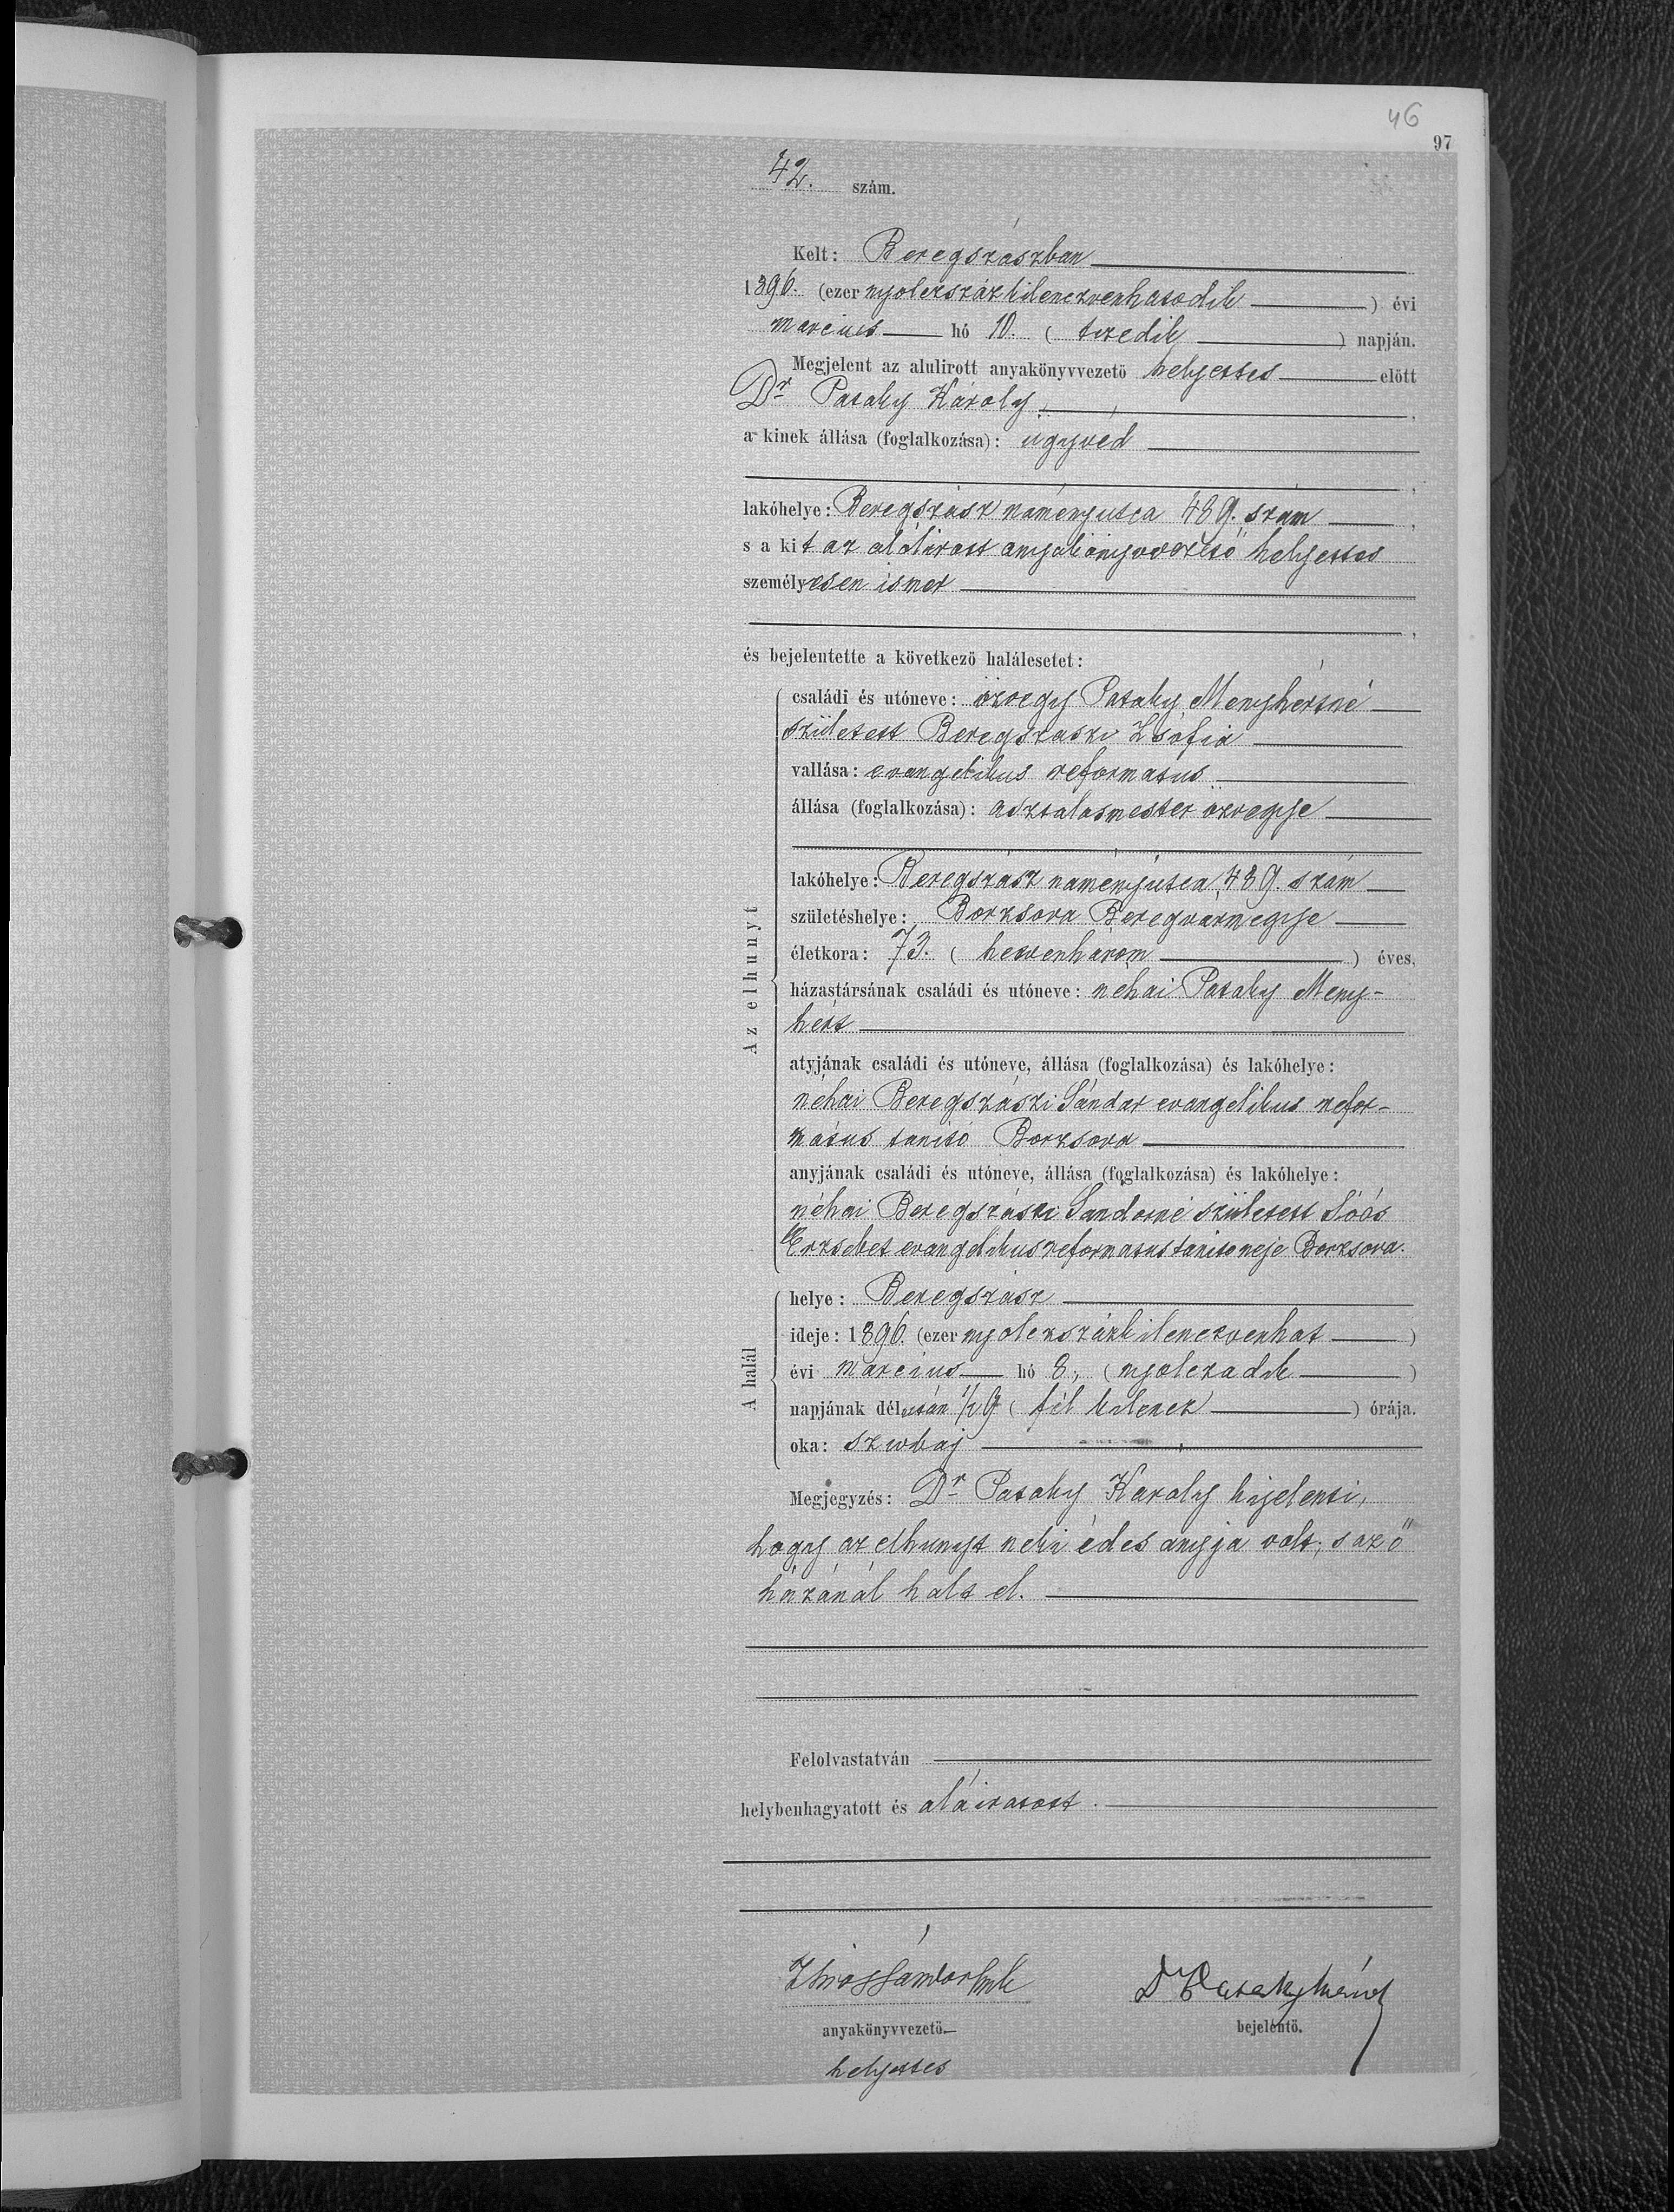 46
97
42. szám.
Kelt: Beregszászban
1896. (ezer nyolczszázkilenczvenhatodik) évi
marcius hó 10. (tizedik) napján.
Megjelent az alulirott anyakönyvvezető helyettes előtt
Dr Pataky Károly,
a kinek állása (foglalkozása): ügyvéd
lakóhelye: Beregszász naményutca 489. szám,
s a kit az alólirott anyakönyvvezető helyettes
személyesen ismer
,
és bejelentette a következő halálesetet:
Az elhunyt
családi és utóneve: özvegy Pataky Menyhértné
született Beregszászi Zsófia
vallása: evangelikus reformatus
állása (foglalkozása): asztalosmester özvegye
lakóhelye: Beregszász naményutca 489. szám
születéshelye: Borzsova Beregvármegye
életkora: 73. (hetvenhárom) éves,
házastársának családi és utóneve: néhai Pataky Meny-
hért
atyjának családi és utóneve, állása (foglalkozása) és lakóhelye:
néhai Beregszászi Sándor evangelikus refor-
mátus tanító Borzsova
anyjának családi és utóneve, állása (foglalkozása) és lakóhelye:
néhai Beregszászi Sándorné született Soós
Erzsébet evangelikus reformatus tanito neje Borzsova.
A halál
helye: Beregszász
ideje: 1896. (ezer nyolczszázkilenczvenhat)
évi marcius hó 8, (nyolczadik)
napjának délután 1/2 9 (fél kilencz) órája.
oka: szivbaj
Megjegyzés: Dr Pataky Karoly kijelenti,
hogy az elhunyt neki édes anyja volt, s az ő
házánál halt el.
Felolvastatván
helybenhagyatott és aláiratott.
anyakönyvvezető
helyettes
bejelentő.